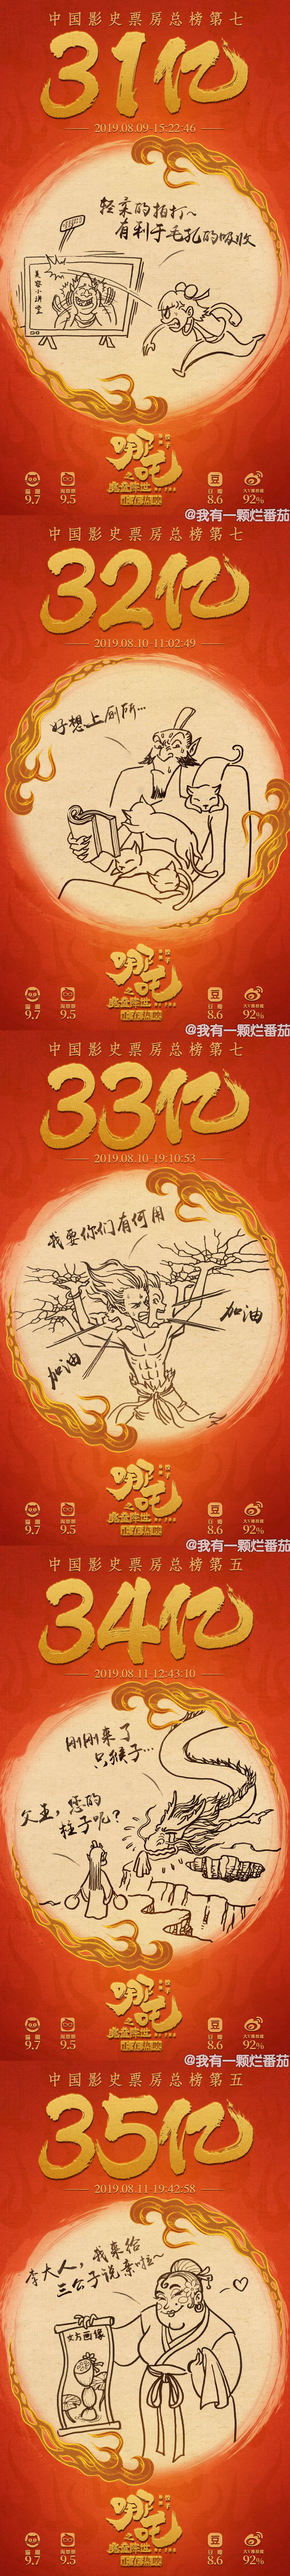 中国影史票房总榜第七
31亿
2019.08.09-15:22:46
轻柔的拍打~
有利于毛孔的吸收
美容小讲堂
哪吒
之
魔童降世
正在热映
猫眼
9.7
淘票票
9.5
豆瓣
8.6
大V推荐度
92%
@我有一颗烂番茄
中国影史票房总榜第七
32亿
2019.08.10-11:02:49
好想上厕所…
哪吒
之
魔童降世
正在热映
猫眼
9.7
淘票票
9.5
豆瓣
8.6
大V推荐度
92%
@我有一颗烂番茄
中国影史票房总榜第七
33亿
2019.08.10-19:10:53
我要你们有何用
加油
加油
哪吒
之
魔童降世
正在热映
猫眼
9.7
淘票票
9.5
豆瓣
8.6
大V推荐度
92%
@我有一颗烂番茄
中国影史票房总榜第五
34亿
2019.08.11-12:43:10
刚刚来了
只猴子…
父王，您的
柱子呢？
哪吒
之
魔童降世
正在热映
猫眼
9.7
淘票票
9.5
豆瓣
8.6
大V推荐度
92%
@我有一颗烂番茄
中国影史票房总榜第五
35亿
2019.08.11-19:42:58
李大人，我来给
三公子说亲啦~
女方画像
哪吒
之
魔童降世
正在热映
猫眼
9.7
淘票票
9.5
豆瓣
8.6
大V推荐度
92%